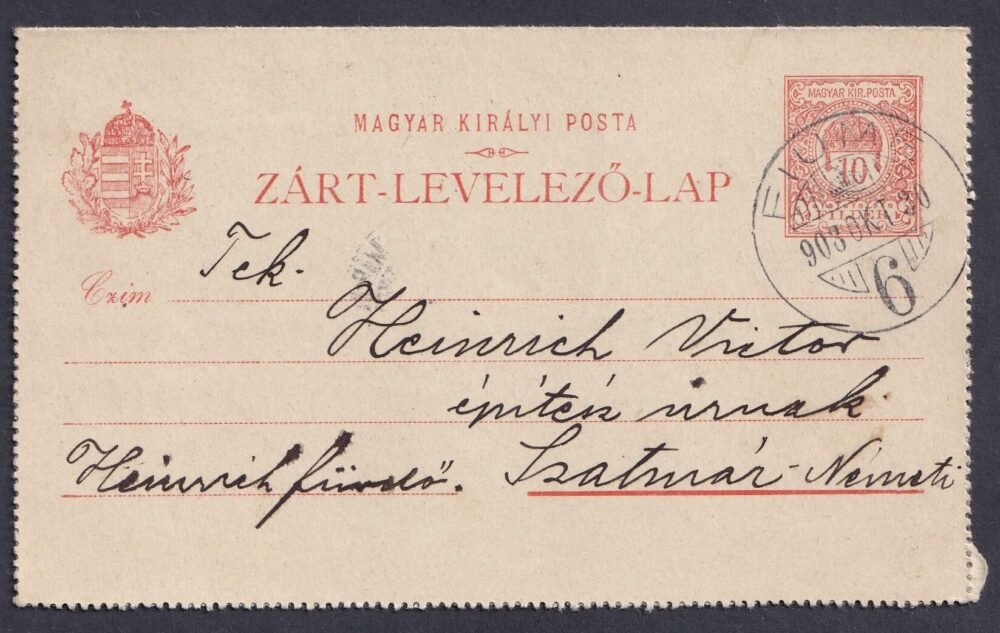 MAGYAR KIRÁLYI POSTA
ZÁRT-LEVELEZŐ-LAP
MAGYAR KIR. POSTA
10
903 OKT. 30
6
Tek.
Czím
Heinrich Victor
építész úrnak
Heinrich fürdő. Szatmár-Németi